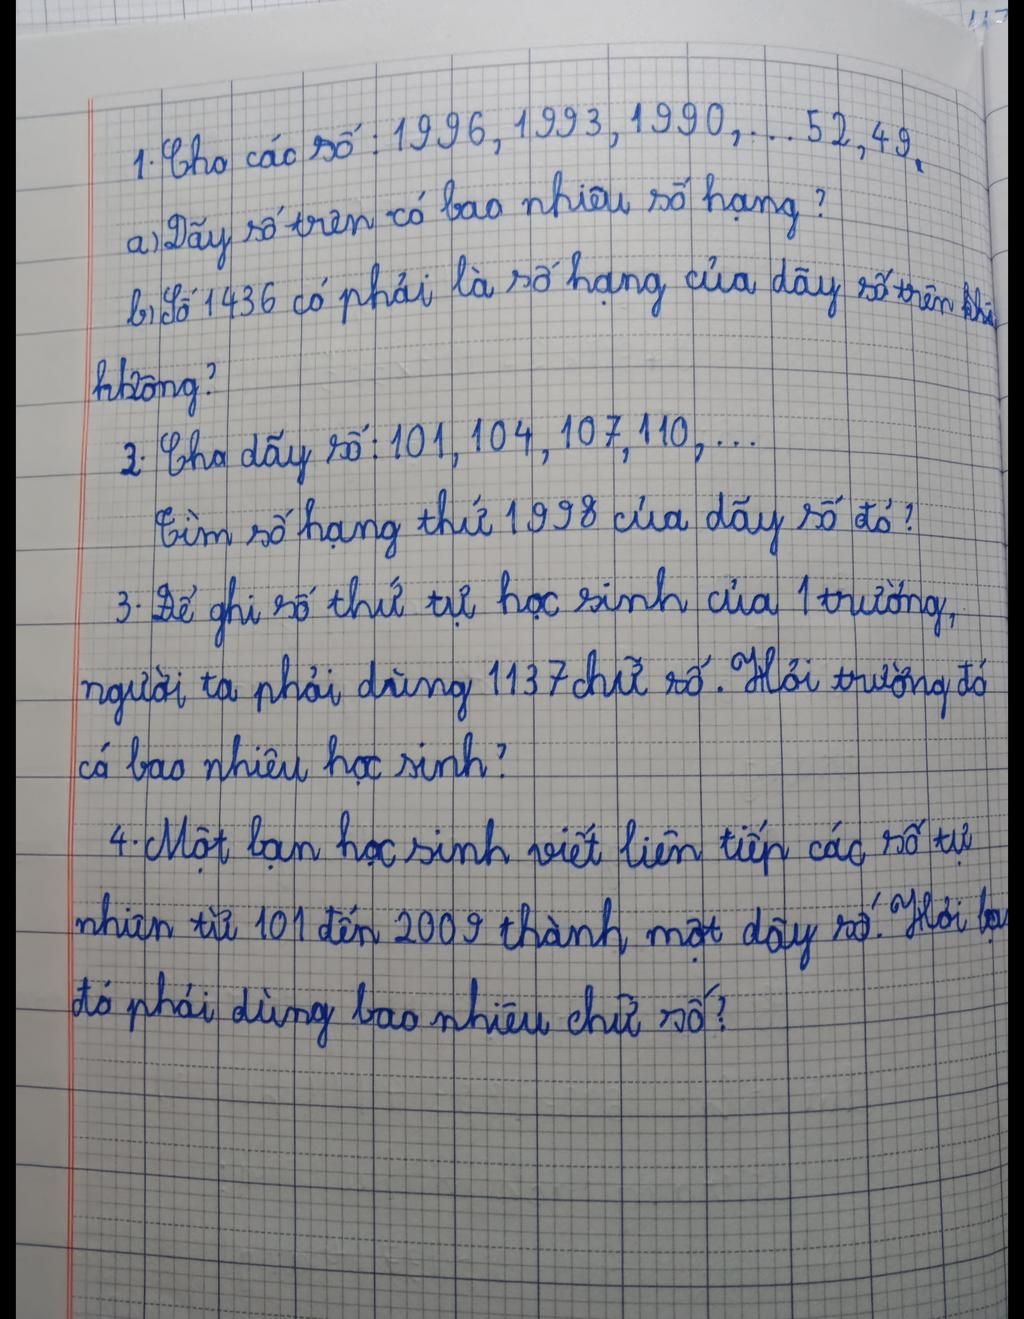 1. Cho các số: 1996, 1993, 1990,... 52, 49.
a) Dãy số trên có bao nhiêu số hạng?
b) Số 1436 có phải là số hạng của dãy số trên
không?
2. Cho dãy số: 101, 104, 107, 110, ...
Tìm số hạng thứ 1998 của dãy số đó?
3. Để ghi số thứ tự học sinh của 1 trường,
người ta phải dùng 1137 chữ số. Hỏi trường đó
có bao nhiêu học sinh?
4. Một bạn học sinh viết liên tiếp các số tự
nhiên từ 101 đến 2009 thành một dãy số. Hỏi bạn
đó phải dùng bao nhiêu chữ số?